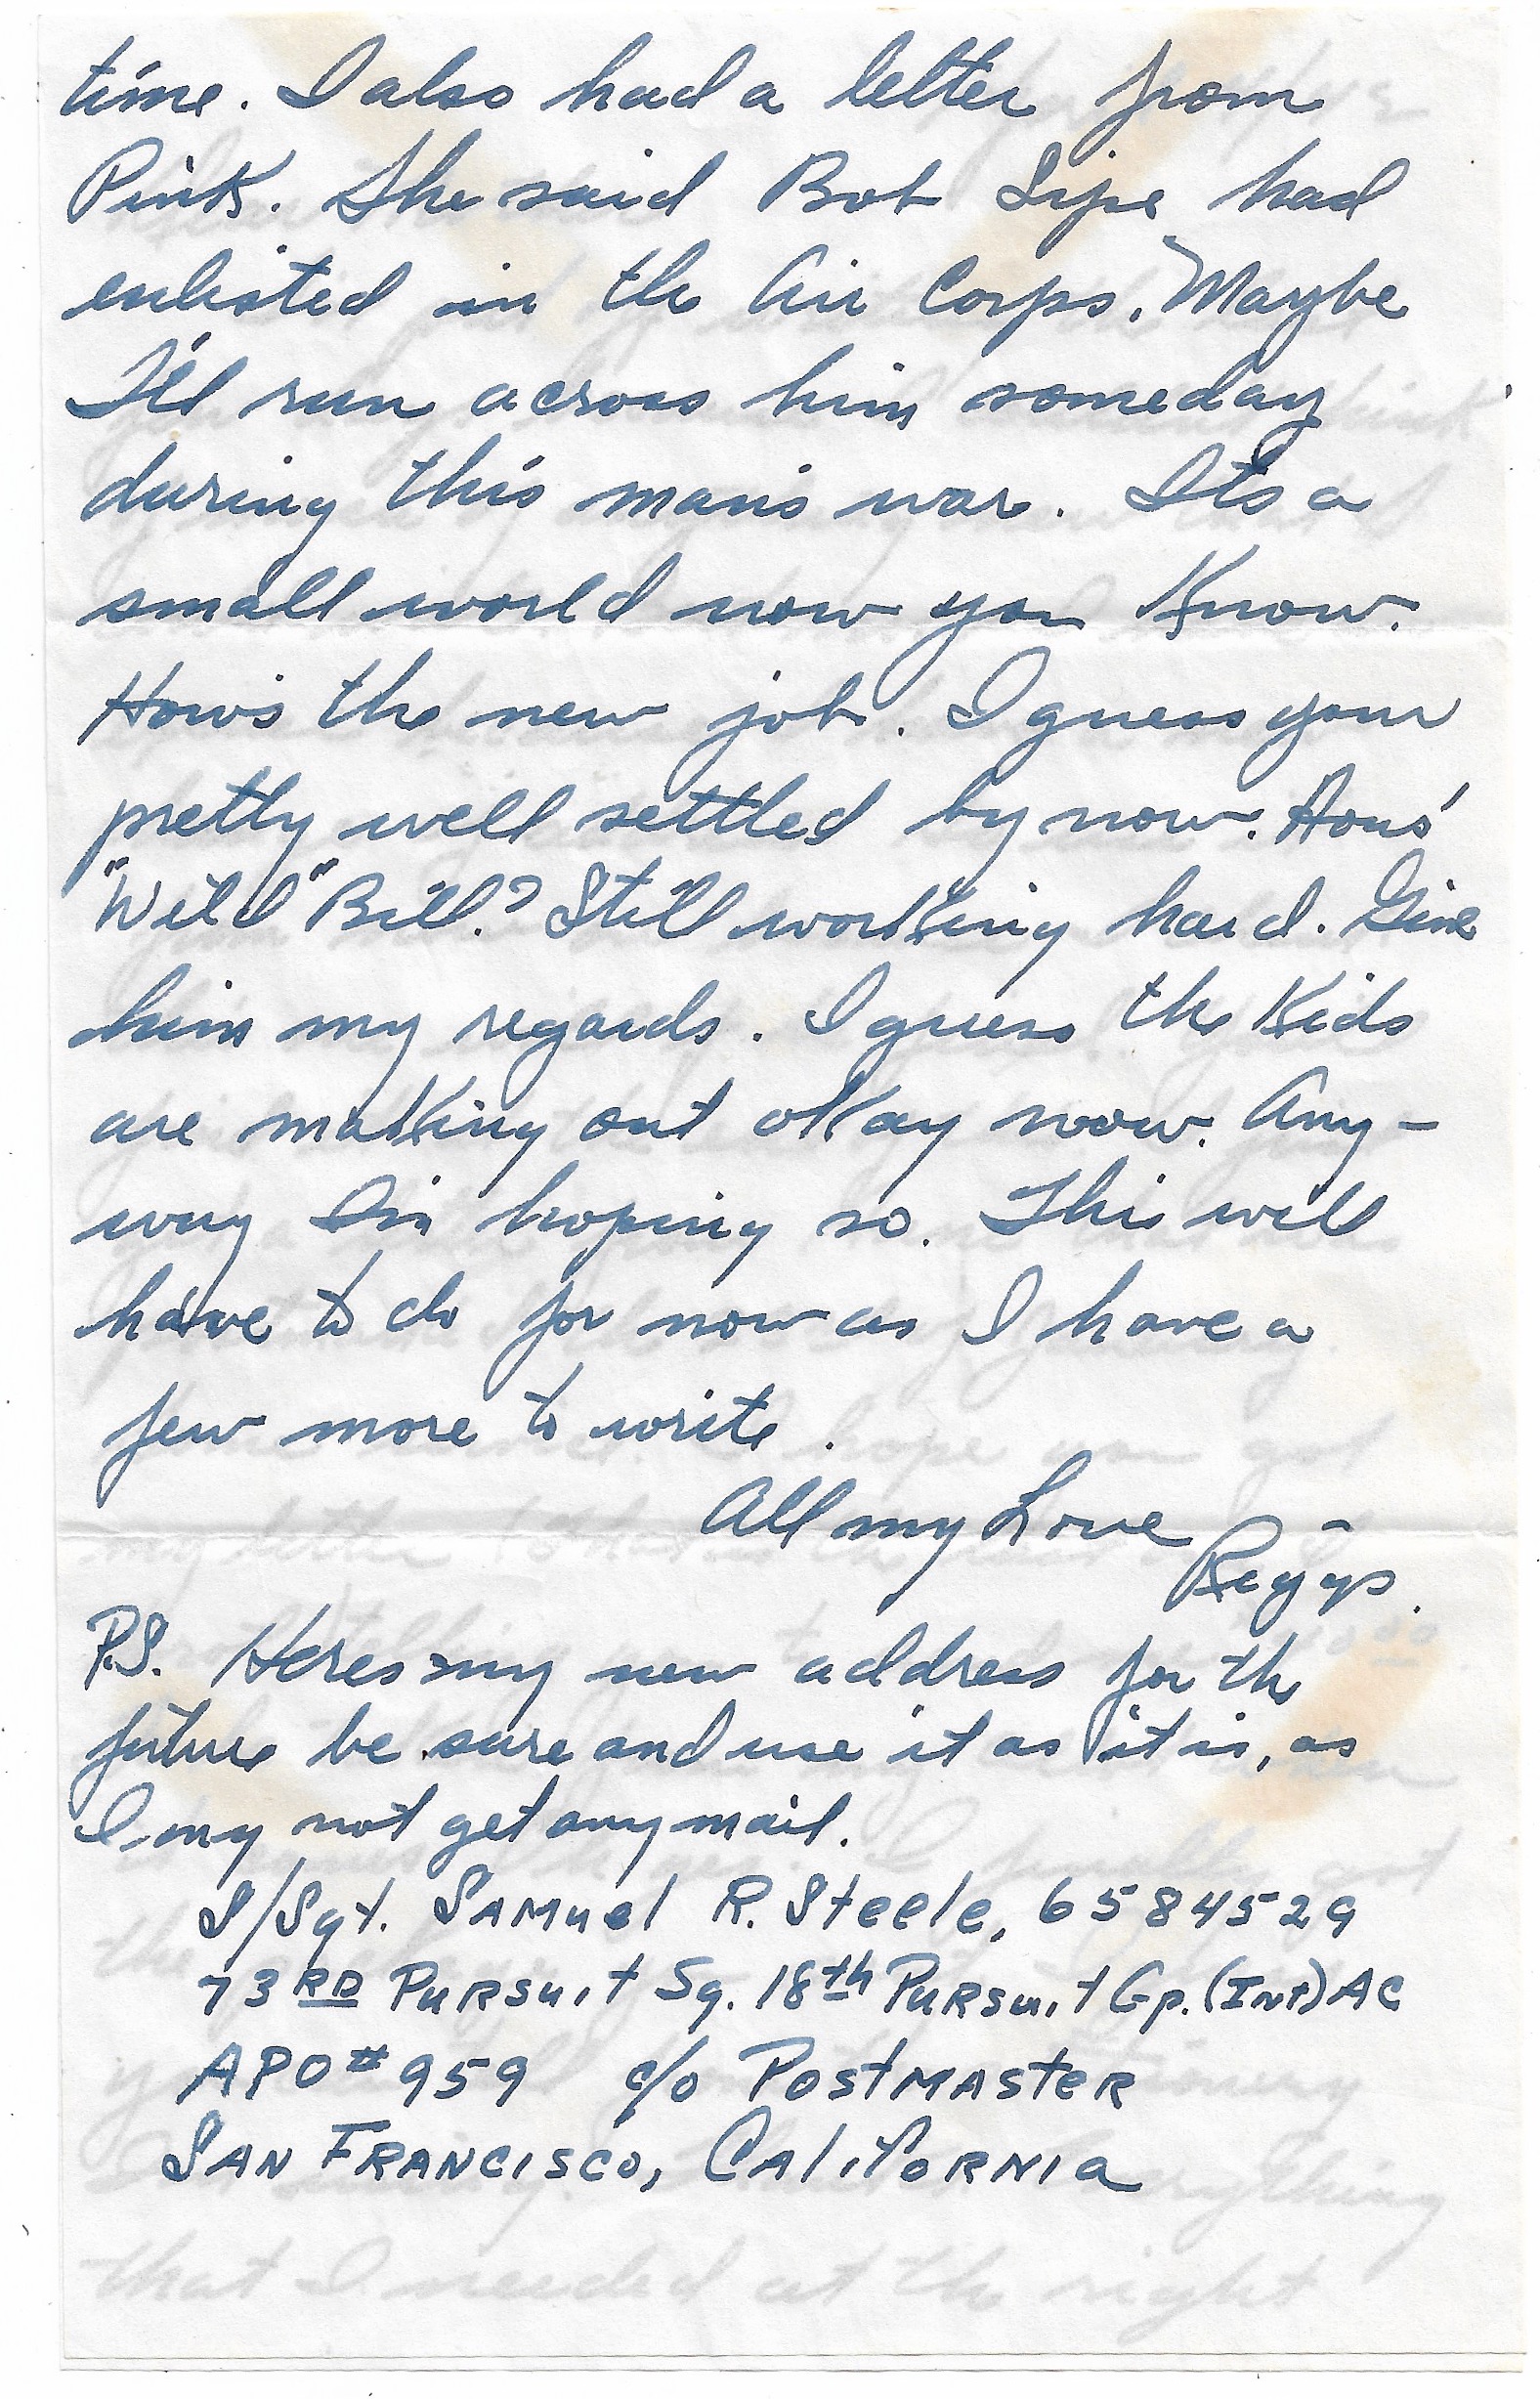 time. I also had a letter from
Pink. She said Bob Sipe had
enlisted in the Air Corps. Maybe
I'll run across him someday
during this man's war. Its a
small world now you Know.
How's the new job. I guess your
pretty well settled by now. How's
"Wild" Bill? Still working hard. Give
him my regards. I guess the Kids
are making out okay now. Any-
way I'm hoping so. This will
have to do for now as I have a
few more to write.
All my Love
Reggs.
P.S. Heres my new address for the
future be sure and use it as it is, as
I my not get any mail.
S/Sgt. Samuel R. Steele, 6584529
73RD Pursuit Sq. 18th Pursuit Gp. (Int) AC
APO #959 c/o Postmaster
San Francisco, California
that I needed at the right